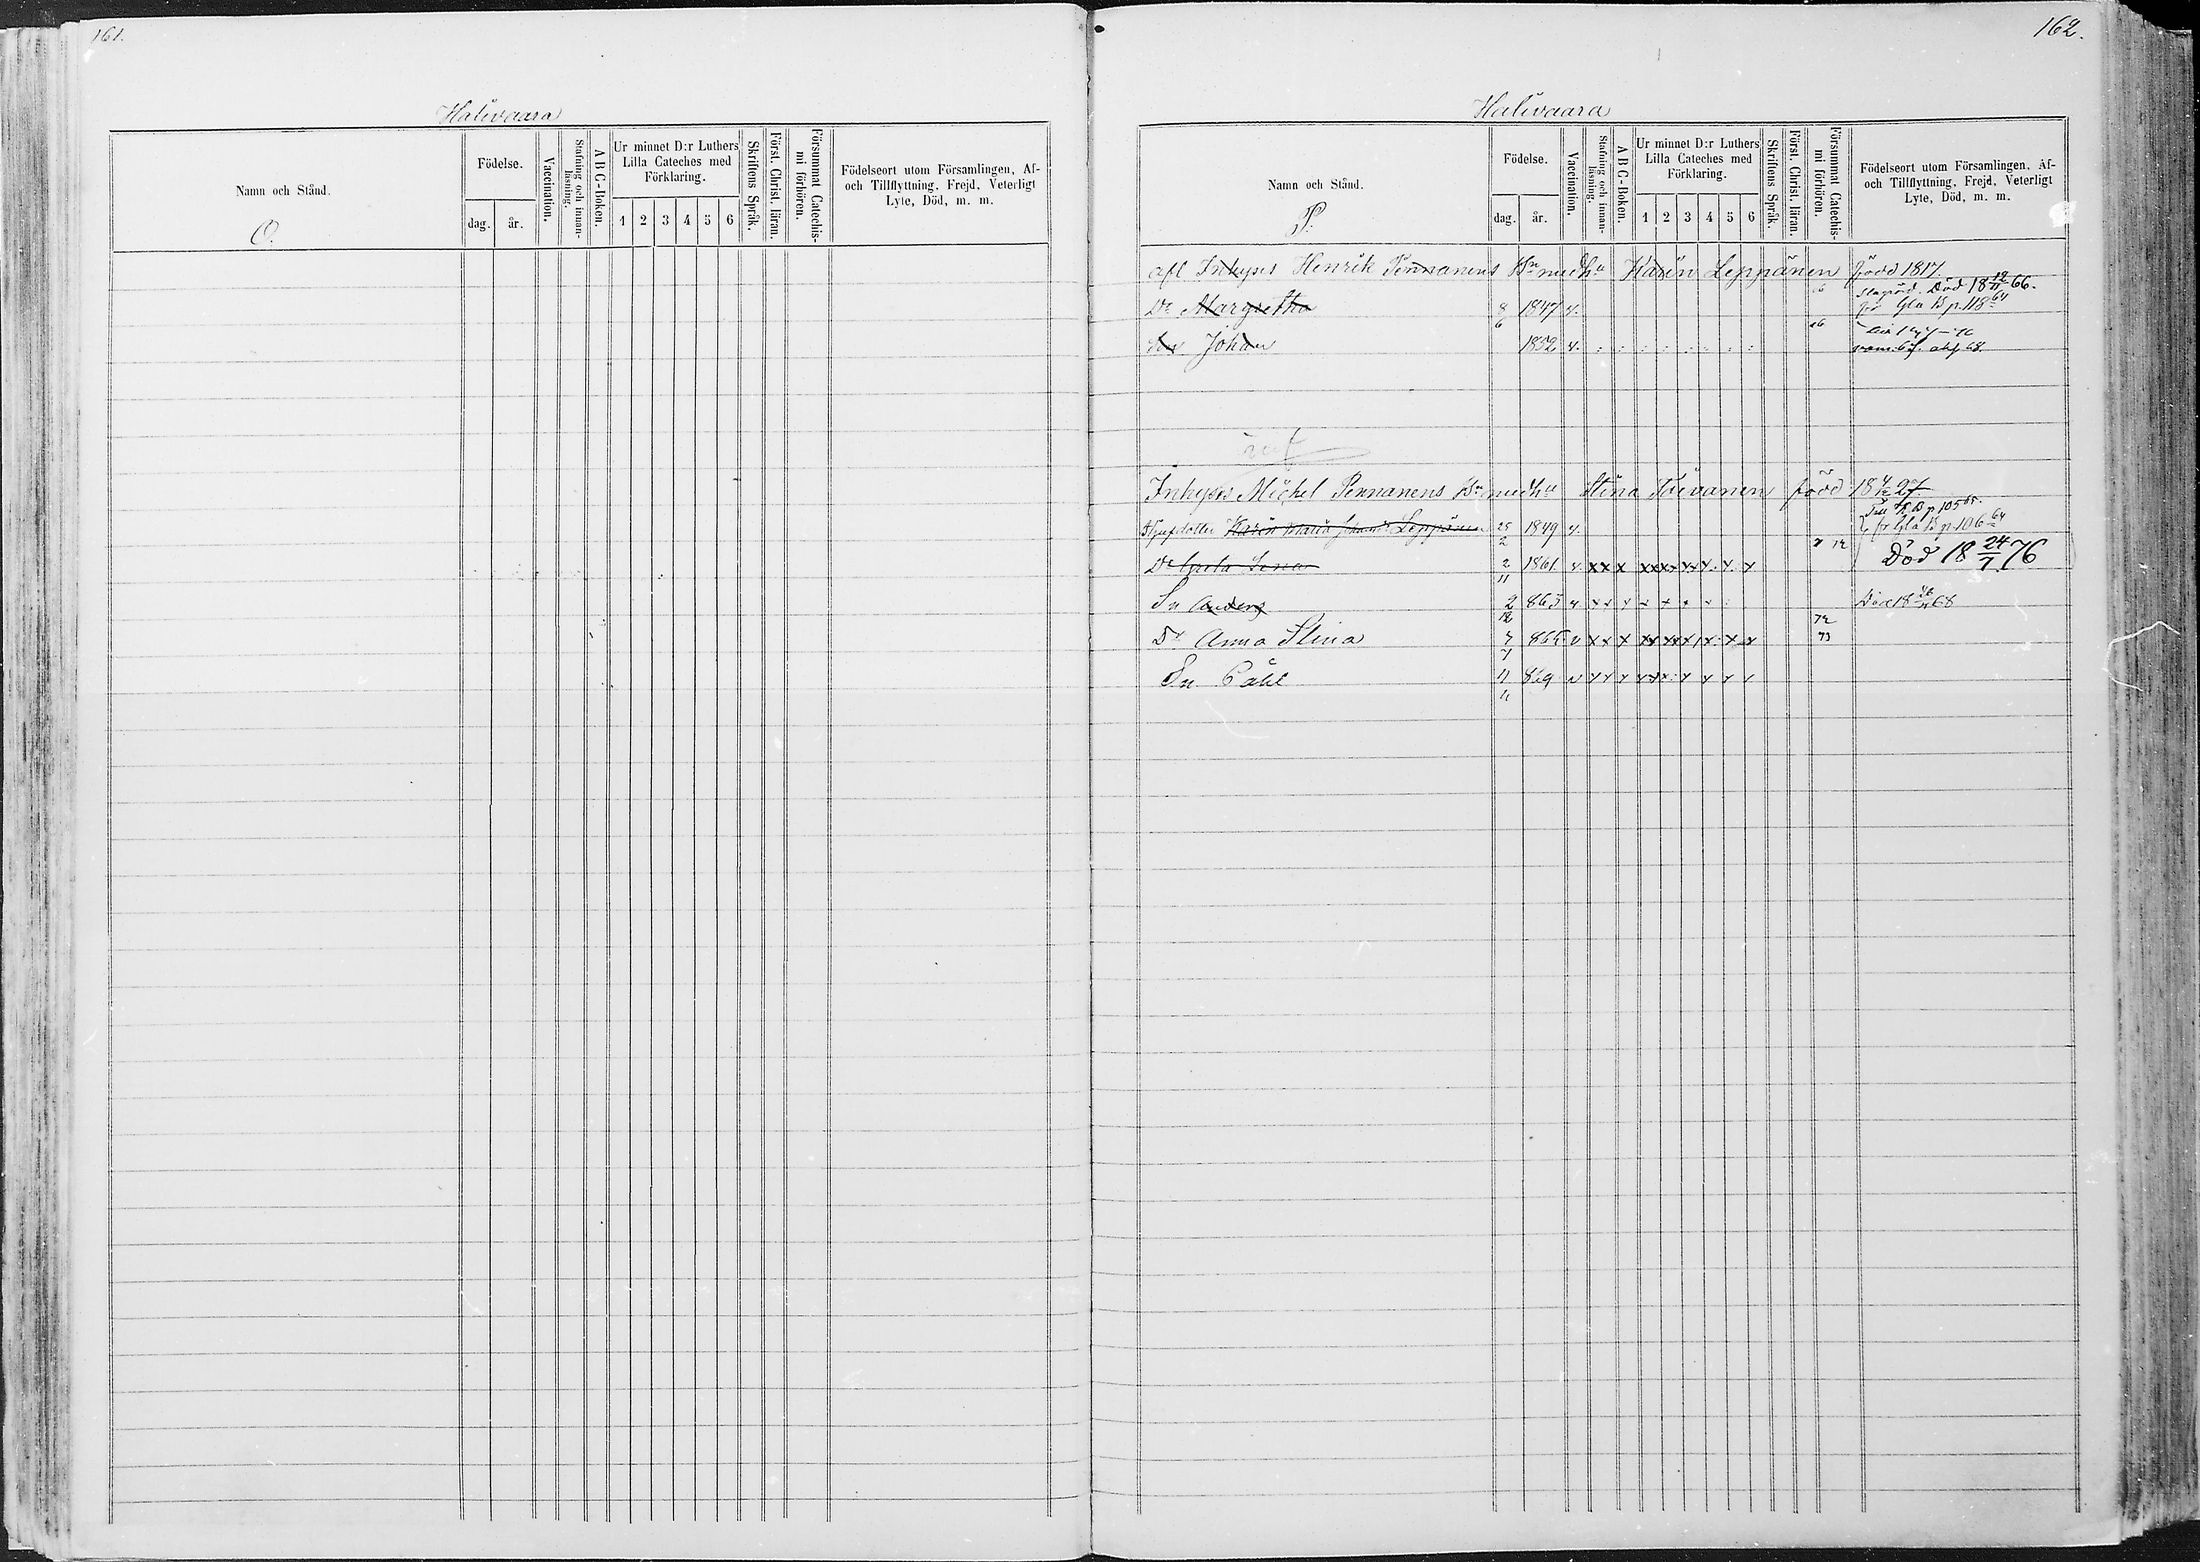 161.
Halivaara
Namn och Stånd.
O.
Födelse.
dag.
år.
Vaccination.
Stafning och innan-
läsning.
A B C-Boken.
Ur minnet D:r Luthers
Lilla Cateches med
Förklaring.
1 2 3 4 5 6
Skriftens Språk.
Först. Christ. läran.
Försummat Catechis-
mi förhören.
Födelseort utom Församlingen, Af-
och Tillflyttning, Frejd, Veterligt
Lyte, Död, m. m.
162.
Halivaara
Namn och Stånd.
P.
Födelse.
dag.
år.
Vaccination.
Stafning och innan-
läsning.
A B C-Boken.
Ur minnet D:r Luthers
Lilla Cateches med
Förklaring.
1 2 3 4 5 6
Skriftens Språk.
Först. Christ. läran.
Försummat Catechis-
mi förhören.
Födelseort utom Församlingen, Af-
och Tillflyttning, Frejd, Veterligt
Lyte, Död, m. m.
afl Inhyses Henrik Pennanens Bn med hu Karin Leppänen född 1817.
Död 18 19/11 66.
Dr Margretha 8/6 1847 v. Gla B p 118 64
Johan 1852 v.
Inhyses Michel Pennanens Bn med hu Stina Toivanen född 18 4/12 27.
Till B p 105 65.
Styfdotter Karin Maria Leppänen 25/2 1849 v. fr Gla B p 106 64
Dr Greta Lena 2/11 1861 v x x x Död 18 24/7 76
Sn Anders 2/12 863 v Död 18 68
72
Dr Anna Stina 7/7 865 v x x x 73
Sn Påhl 11/11 869 v